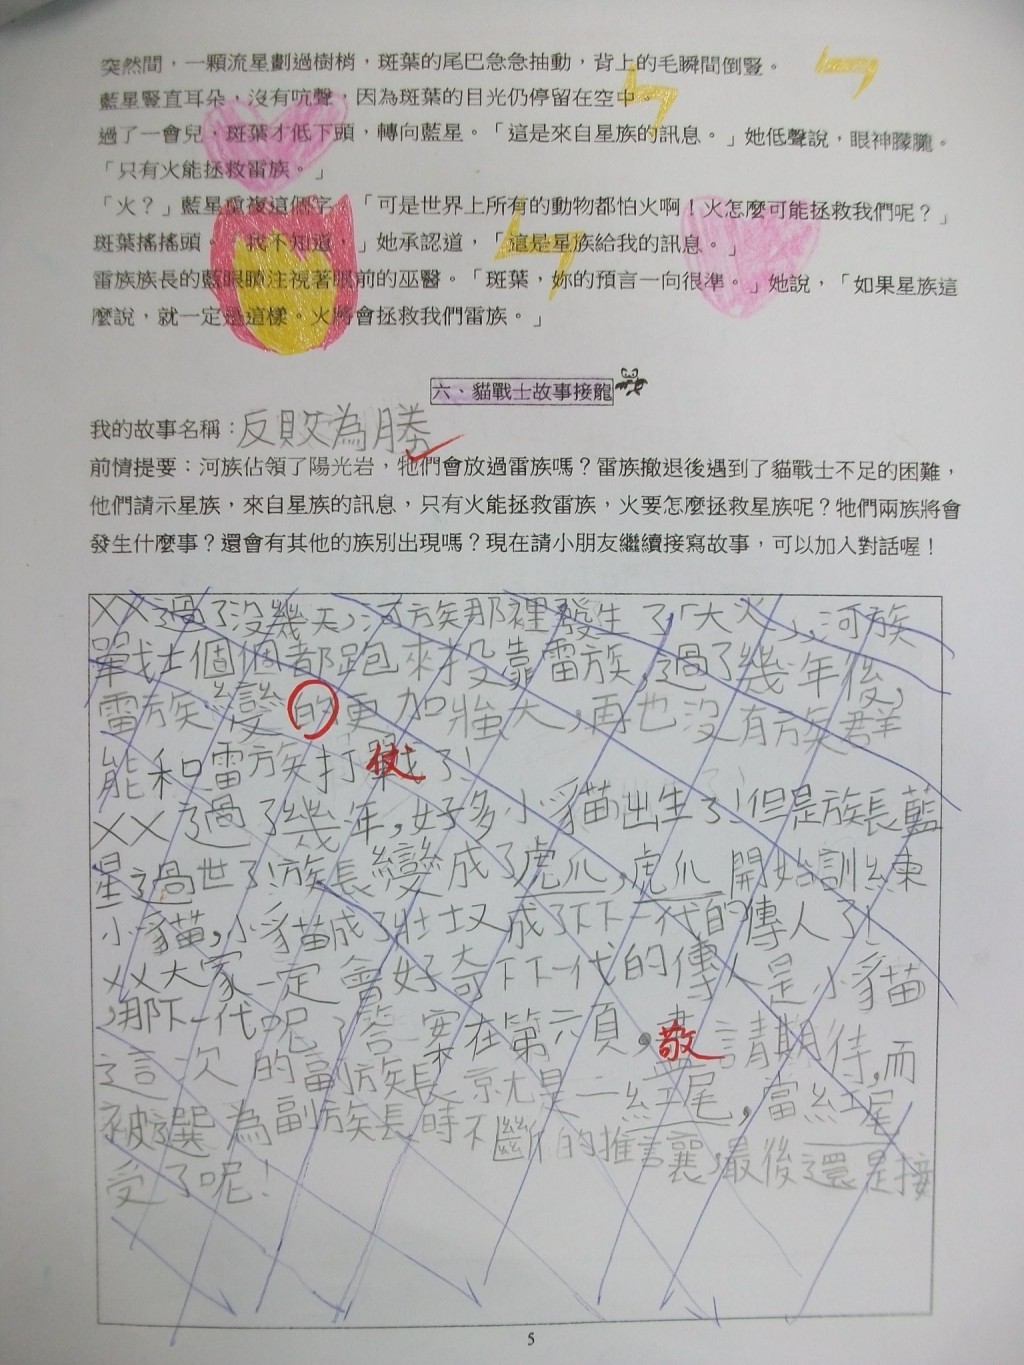 突然間，一顆流星劃過樹梢，斑葉的尾巴急急抽動，背上的毛瞬間倒豎。
藍星豎直耳朵，沒有吭聲，因為斑葉的目光仍停留在空中。
過了一會兒，斑葉才低下頭，轉向藍星。「這是來自星族的訊息。」她低聲說，眼神朦朧。
「只有火能拯救雷族。」
「火？」藍星重複這個字，「可是世界上所有的動物都怕火啊！火怎麼可能拯救我們呢？」
斑葉搖搖頭。「我不知道，」她承認道，「這是星族給我的訊息。」
雷族族長的藍眼睛注視著眼前的巫醫。「斑葉，妳的預言一向很準。」她說，「如果星族這
麼說，就一定是這樣。火將會拯救我們雷族。」
六、貓戰士故事接龍
我的故事名稱：反敗為勝
前情提要：河族佔領了陽光岩，牠們會放過雷族嗎？雷族撤退後遇到了貓戰士不足的困難，
他們請示星族，來自星族的訊息，只有火能拯救雷族，火要怎麼拯救星族呢？牠們兩族將會
發生什麼事？還會有其他的族別出現嗎？現在請小朋友繼續接寫故事，可以加入對話喔！
XX過了沒幾天，河族那裡發生了「大火」，河族
戰士個個都跑來投靠雷族，過了幾年後，
雷族變的更加壯大，再也沒有族群
能和雷族打仗了！
XX過了幾年，好多小貓出生了！但是族長藍
星過世了！族長變成了虎爪，虎爪開始訓練
小貓，小貓成了壯士又成了下下一代的傳人了！
XX大家一定會好奇下下一代的傳人是小貓
，那下一代呢？答案在第六頁，敬請期待，而
這一次的副族長就是—紅尾，當紅尾
被選為副族長時不斷的推讓，最後還是接
受了呢！
5